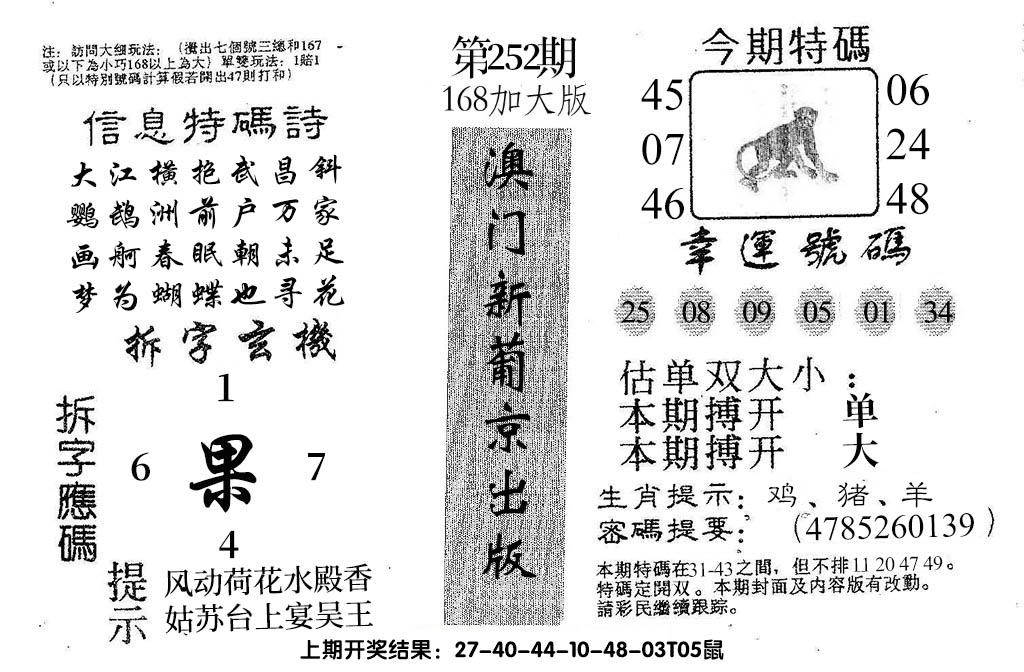 注：訪問大细玩法：（攪出七個號三總和167
或以下為小巧168以上為大）單雙玩法：1賠1
（只以特別號碼計算假若開出47則打和）
信息特碼詩
大江横抱武昌斜
鹦鹉洲前户万家
画舸春眠朝未足
梦为蝴蝶也寻花
拆字玄機
拆字應碼
1
6 果 7
4
提示
风动荷花水殿香
姑苏台上宴吴王
第252期
168加大版
澳门新葡京出版
今期特碼
45 06
07 24
46 48
幸運號碼
25 08 09 05 01 34
估单双大小：
本期搏开 单
本期搏开 大
生肖提示：鸡、猪、羊
密碼提要：（4785260139）
本期特碼在31-43之間，但不排11 20 47 49。
特碼定開双。本期封面及内容版有改動。
請彩民繼續跟踪。
上期开奖结果：27-40-44-10-48-03T05鼠